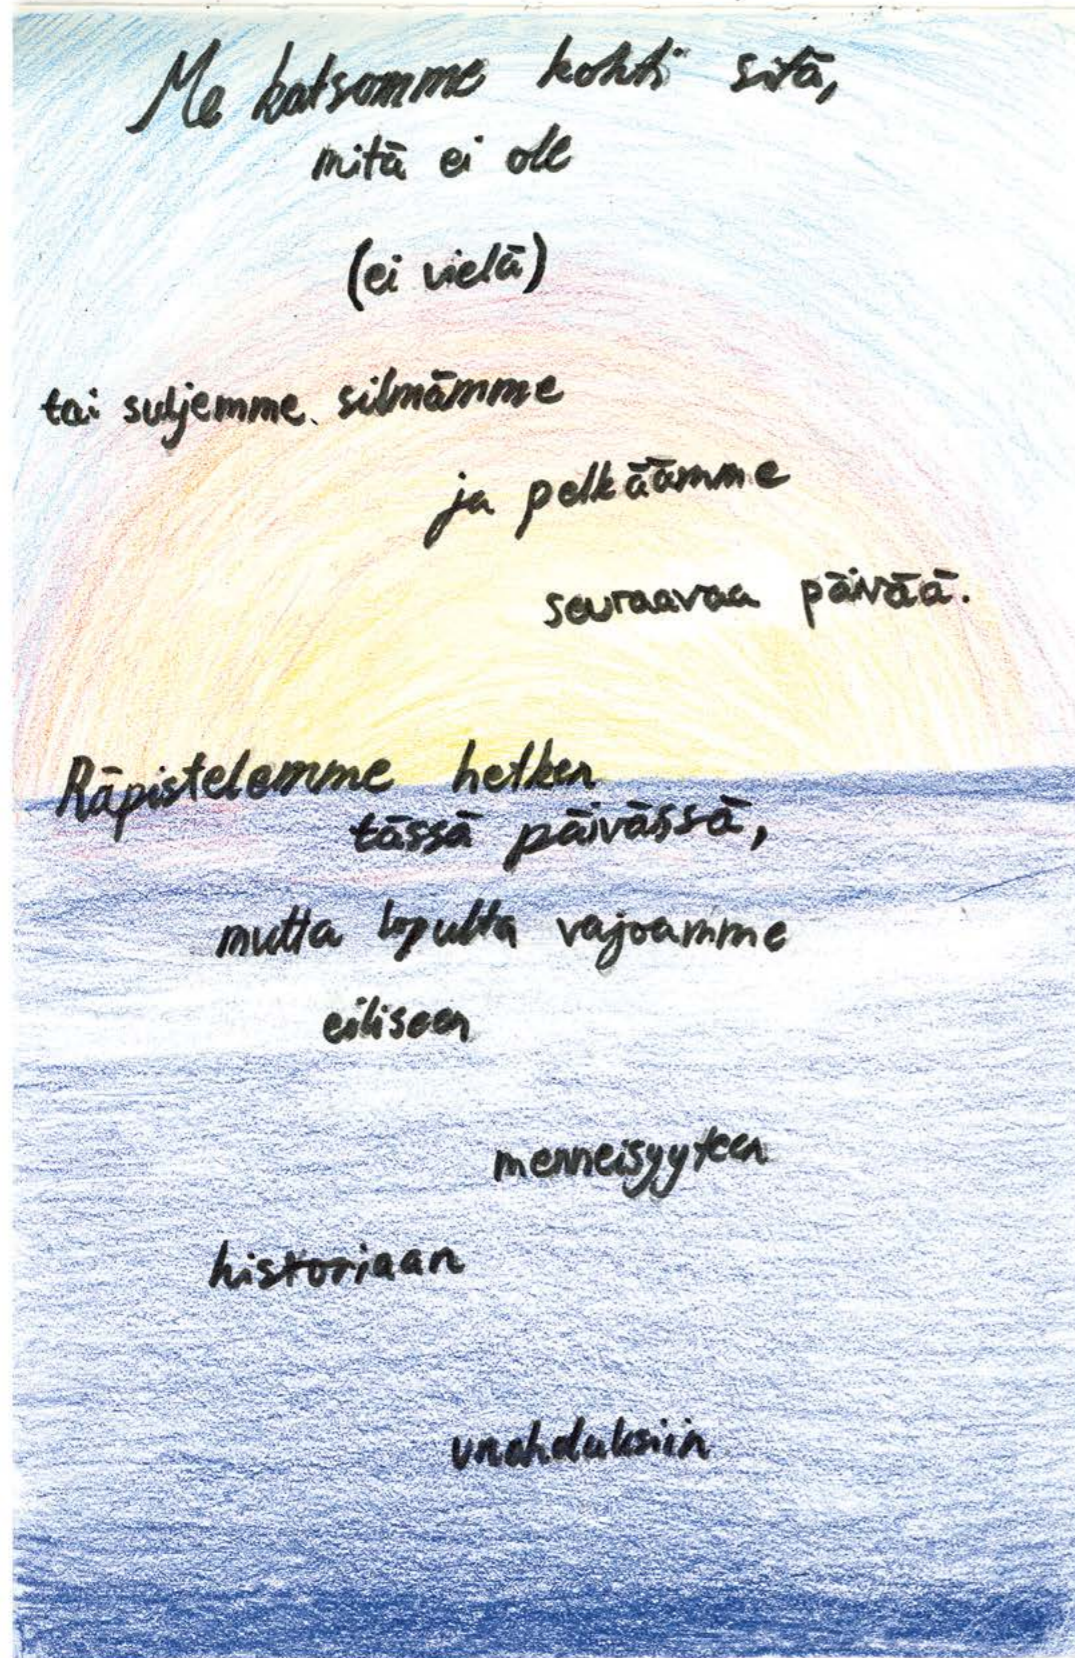 Me katsomme kohti sitä,
mitä ei ole
(ei vielä)
tai suljemme silmämme
ja pelkäämme
seuraavaa päivää.
Räpistelemme hetken
tässä päivässä,
mutta lopulta vajoamme
eiliseen
menneisyyteen
historiaan
unohduksiin